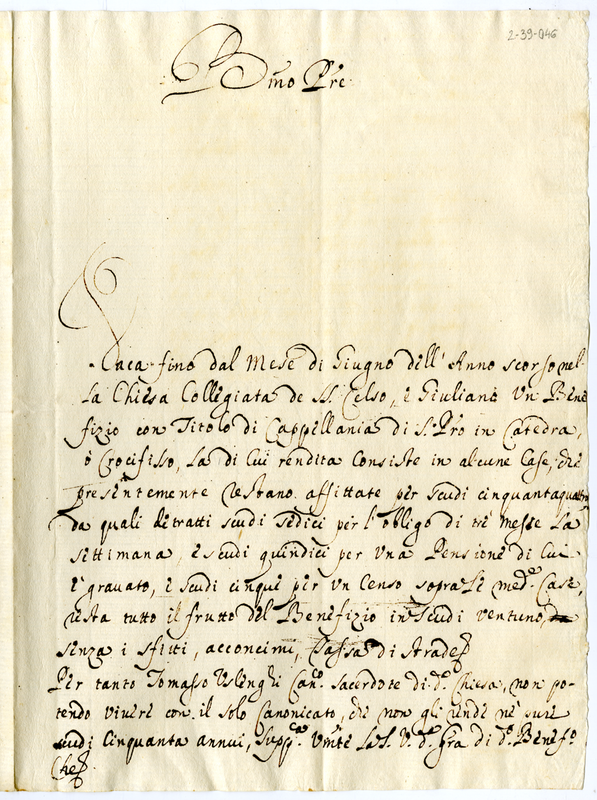 2-39-046
Bmo Pre
Vaca fino dal Mese di Giugno dell' Anno scorso nel-
la Chiesa Collegiata de SS. Celso, e Giuliano un Bene
fizio con Titolo di Cappellania di S. Pro in Catedra,
ò Crocifisso, la di cui rendita consiste in alcune Case, che
presentemente restano affittate per scudi cinquantaquattro
da quali detratti scudi sedici per l'obligo di tre messe la
settimana, e scudi quindici per una Pensione di cui
è gravato, e scudi cinque per un Censo sopra le med.e Case,
resta tutto il frutto del Benefizio in scudi ventuno,
senza i sfitti, acconcimi, Tassa di Strade
Per tanto Tomasso Uslenghi Can.o Sacerdote di d.a Chiesa, non po-
tendo vivere con il solo Canonicato, che non gli rende nè pure
scudi Cinquanta annui, supp.ca Um.te la S. V. d.a Gra di d.o Benef.o
Che